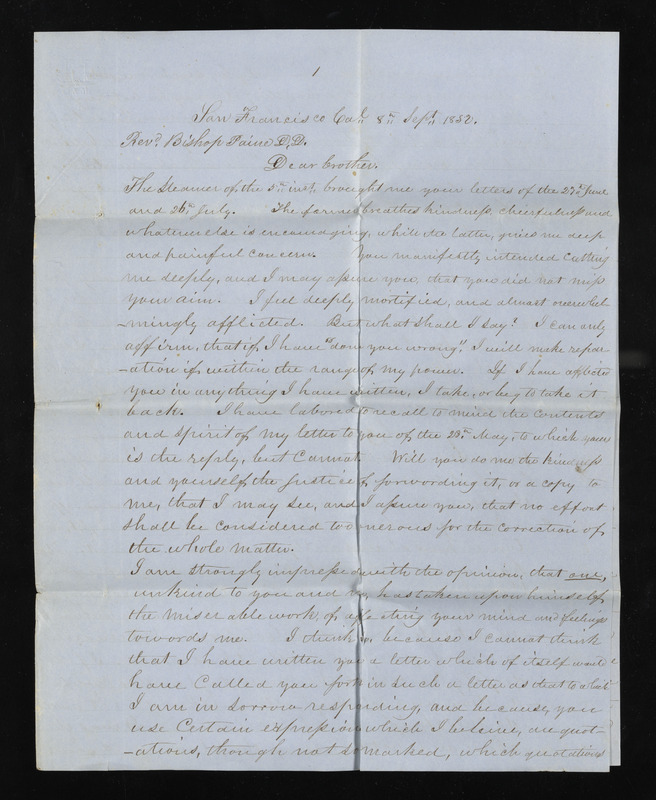 1
San Francisco Cal. 8th Sept. 1852.
Revd. Bishop Paine D.D.
Dear Brother.
The Steamer of the 5th inst, brought me your letters of the 27th June
and 26th July. The former breathes kindness, cheerfulness and
whatever else is encouraging, while the latter, gives me deep
and painful concern. You manifestly intended cutting
me deeply, and I may assure you, that you did not miss
your aim. I feel deeply mortified, and almost overwhel
-mingly afflicted. But what shall I say? I can only
affirm, that if I have "done you wrong" I will make repar
-ation if within the range of my power. If I have afflicted
you in anything I have written, I take, or beg to take it
back. I have labored to recall to mind the contents
and spirit of my letter to you of the 28th May, to which yours
is the reply, but cannot. Will you do me the kindness
and yourself the justice of forwording it, or a copy to
me, that I may see, and I assure you, that no effort
shall be considered too onerous for the correction of
the whole matter.
I am strongly impressed with the opinion, that one,
unkind to you and me, has taken upon himself,
the miserable work, of affecting your mind and feelings
towords me. I think so, because I cannot think
that I have written you a letter which of itself would
have called you forth in such a letter as that to which
I am in sorrow responding, and because, you
use certain expression which I believe, are quot-
-ations, though not so marked, which quotations